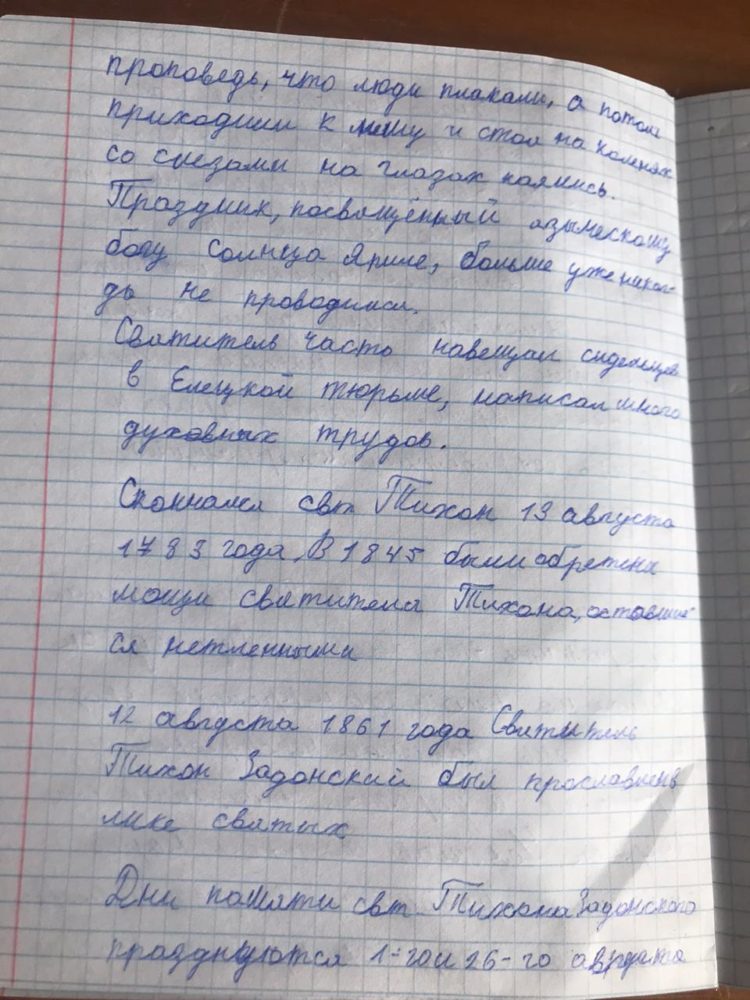 проповедь, что люди плакали, а потом
приходили к нему и стоя на коленях
со слезами на глазах каялись.
Праздник, посвящённый языческому
богу Солнца Яриле, больше уже никог-
да не проводился.
Святитель часто навещал сидельцев
в Елецкой тюрьме, написал много
духовных трудов.
Скончался свт Тихон 13 августа
1783 года. В 1845 были обретены
мощи святителя Тихона, оставшие-
ся нетленными
12 августа 1861 года Святитель
Тихон Задонский был прославлен в
лике святых
Дни памяти свт. Тихона Задонского
празднуются 1-го и 26-го августа